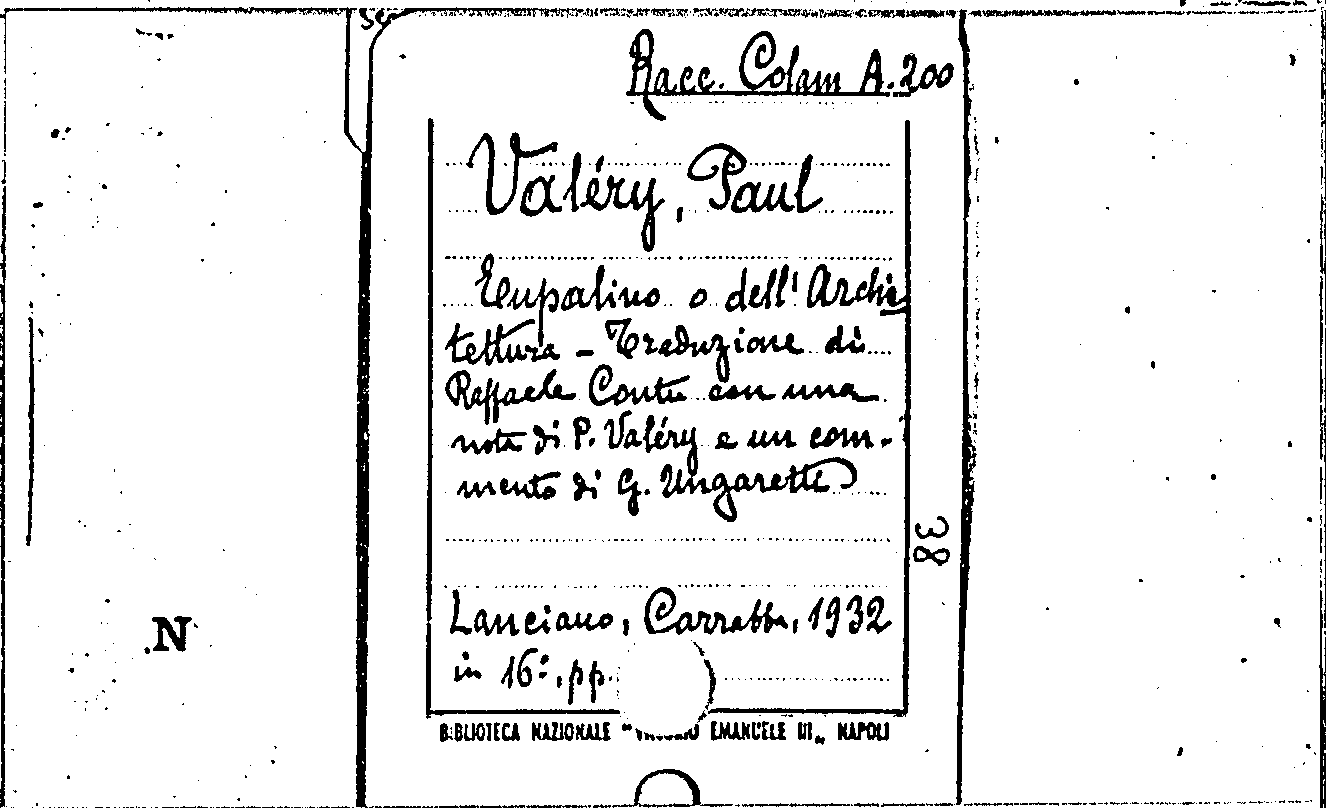 Racc. Colam A.200
Valéry, Paul
Eupalino o dell'Archi
tettura - Traduzione di
Raffaele Contu con una
nota di P. Valéry e un com-
mento di G. Ungaretti
38
Lanciano, Carrabba, 1932
in 16°, pp.
BIBLIOTECA NAZIONALE " EMANUELE III„ NAPOLI
N